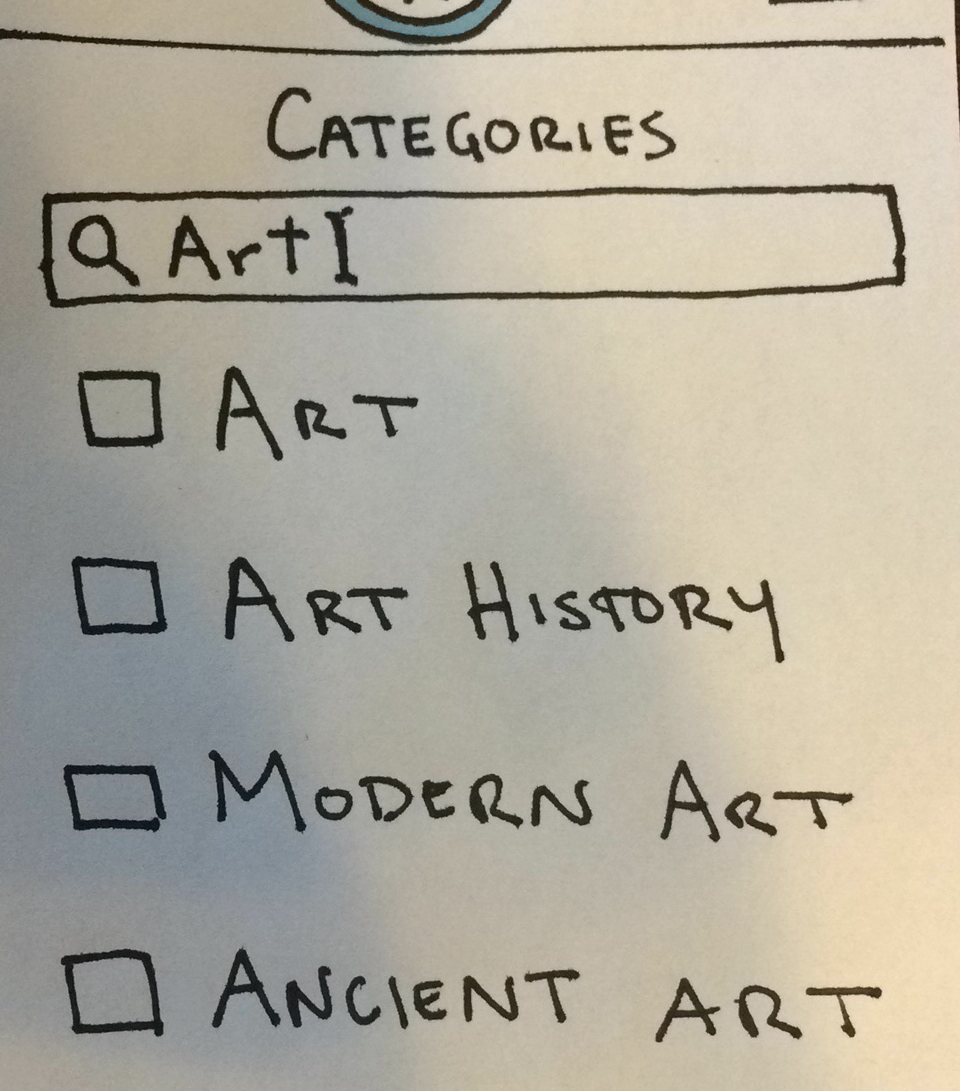 CATEGORIES
Art
ART
ART HISTORY
MODERN ART
ANCIENT ART